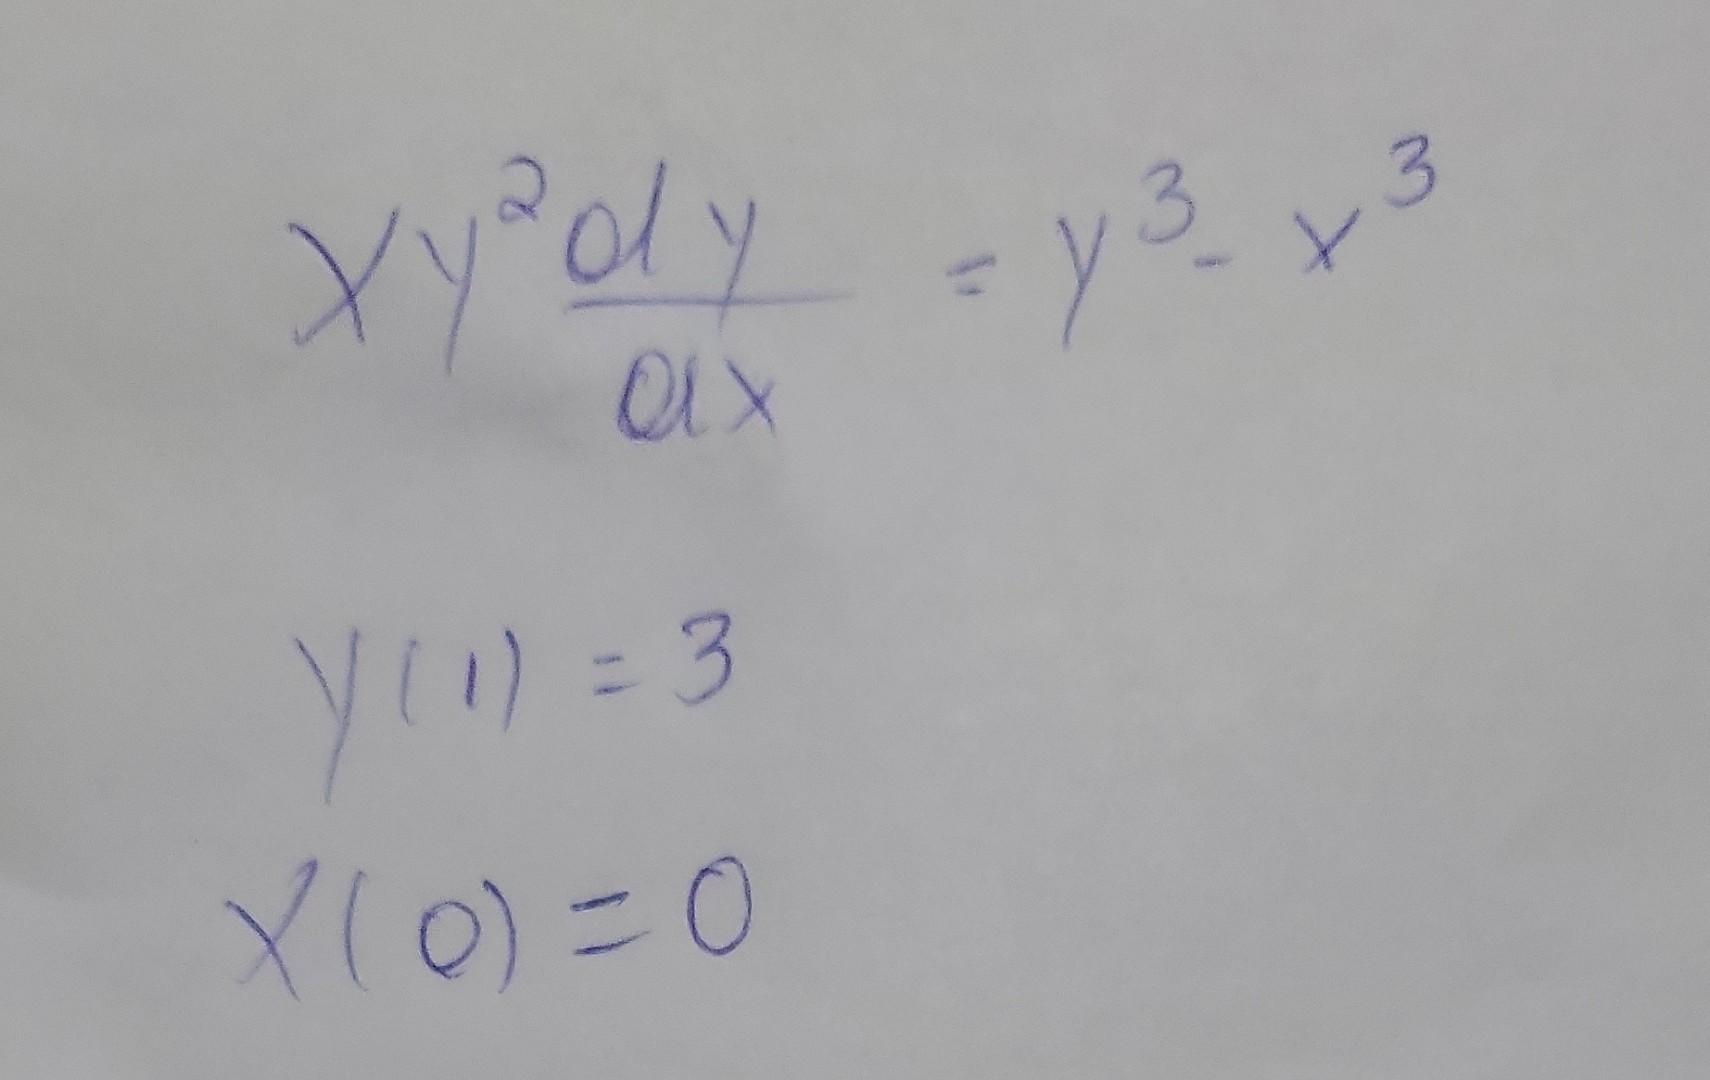 xy² dy/dx = y³ - x³
y(1) = 3
x(0) = 0